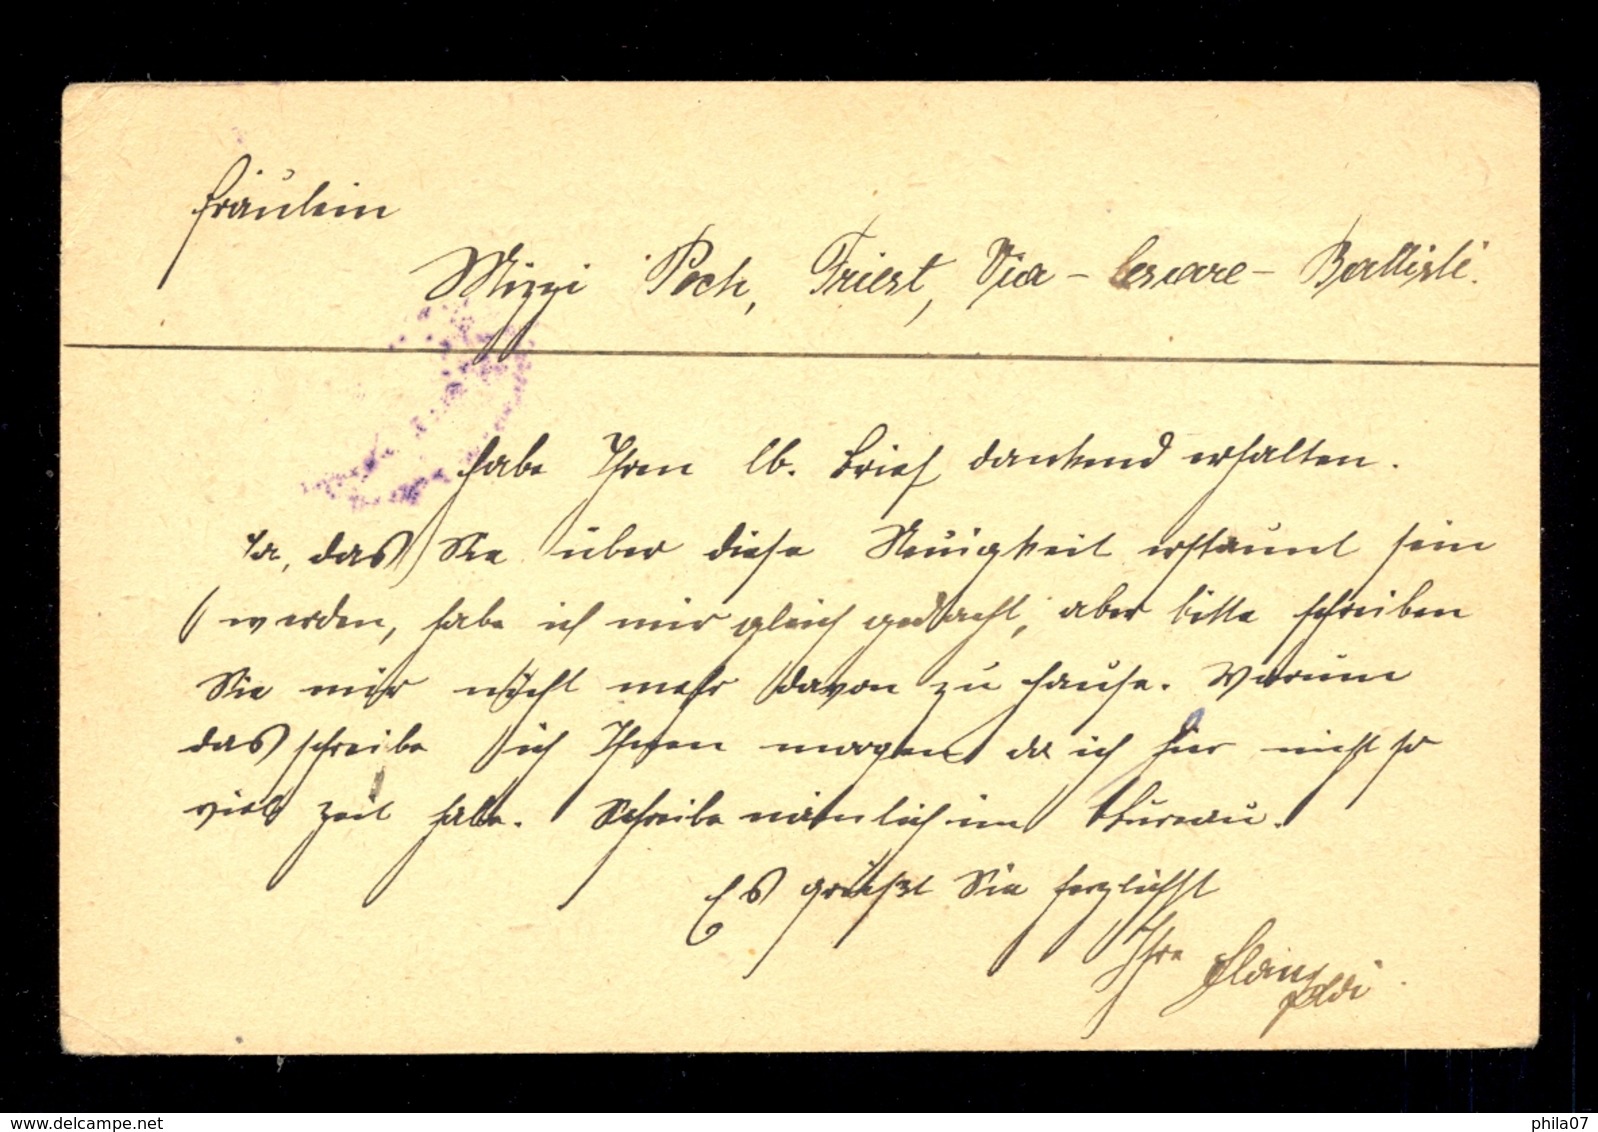 Fräulein
Mizzi Pock, Triest, Via - Cesare - Battisti.
habe Ihren lb. Brief dankend erhalten.
Ja, das Sie über diese Neuigkeit erstaunt sein
werden, habe ich mir gleich gedacht, aber bitte schreiben
Sie mir nicht mehr davon zu hause. Warum
das schreibe ich Ihnen morgen da ich hier nicht so
viel Zeit habe. Schreibe nämlich im Bureau.
Es grüßt Sie herzlichst
Ihre
delcampe.net
phila07